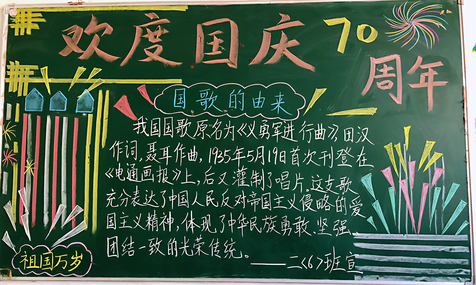 欢度国庆70
周年
国歌的由来
我国国歌原名为《义勇军进行曲》,田汉
作词,聂耳作曲,1935年5月19日首次刊登在
《电通画报》上,后又灌制了唱片,这支歌
充分表达了中国人民反对帝国主义侵略的爱
国主义精神,体现了中华民族勇敢、坚强、
团结一致的光荣传统。
——二<6>班宣
祖国万岁